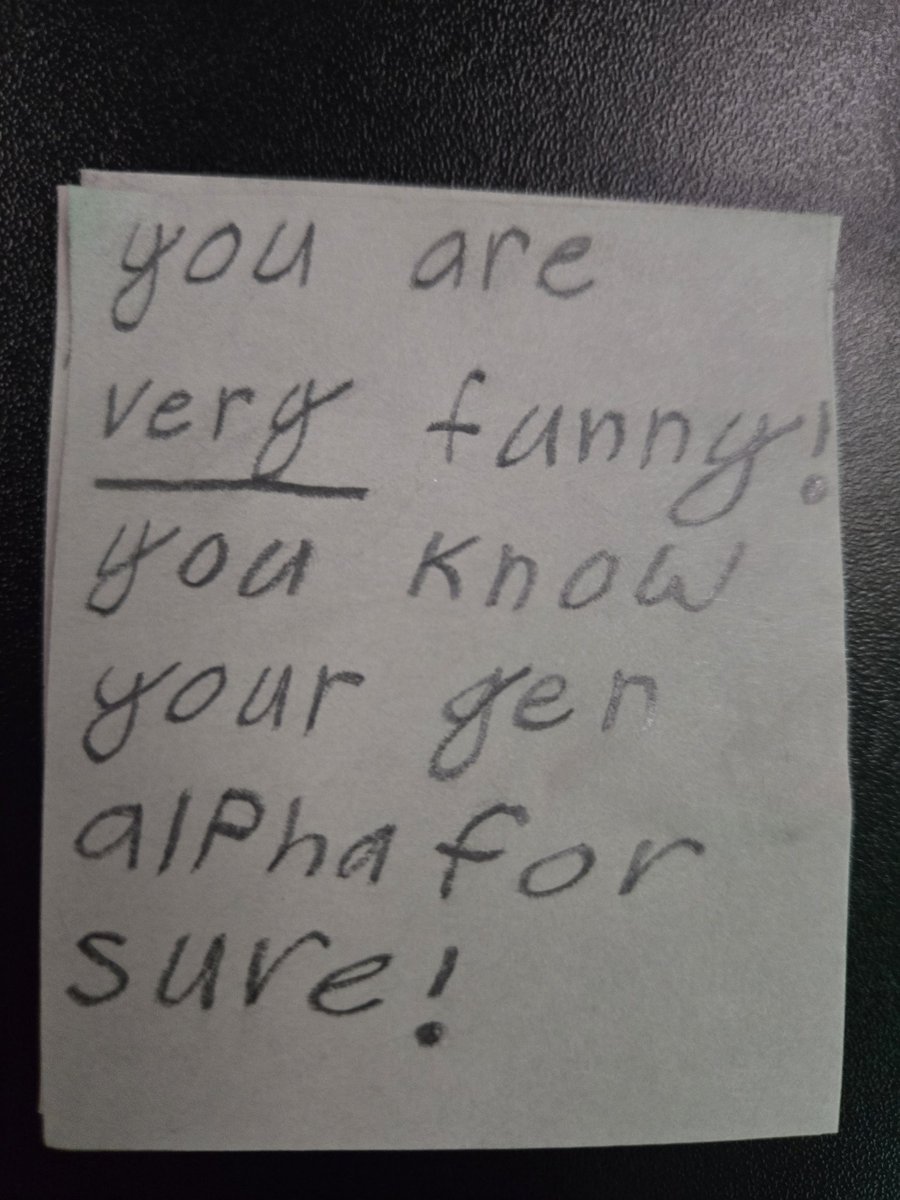 you are
very funny!
you know
your gen
alPha for
sure!